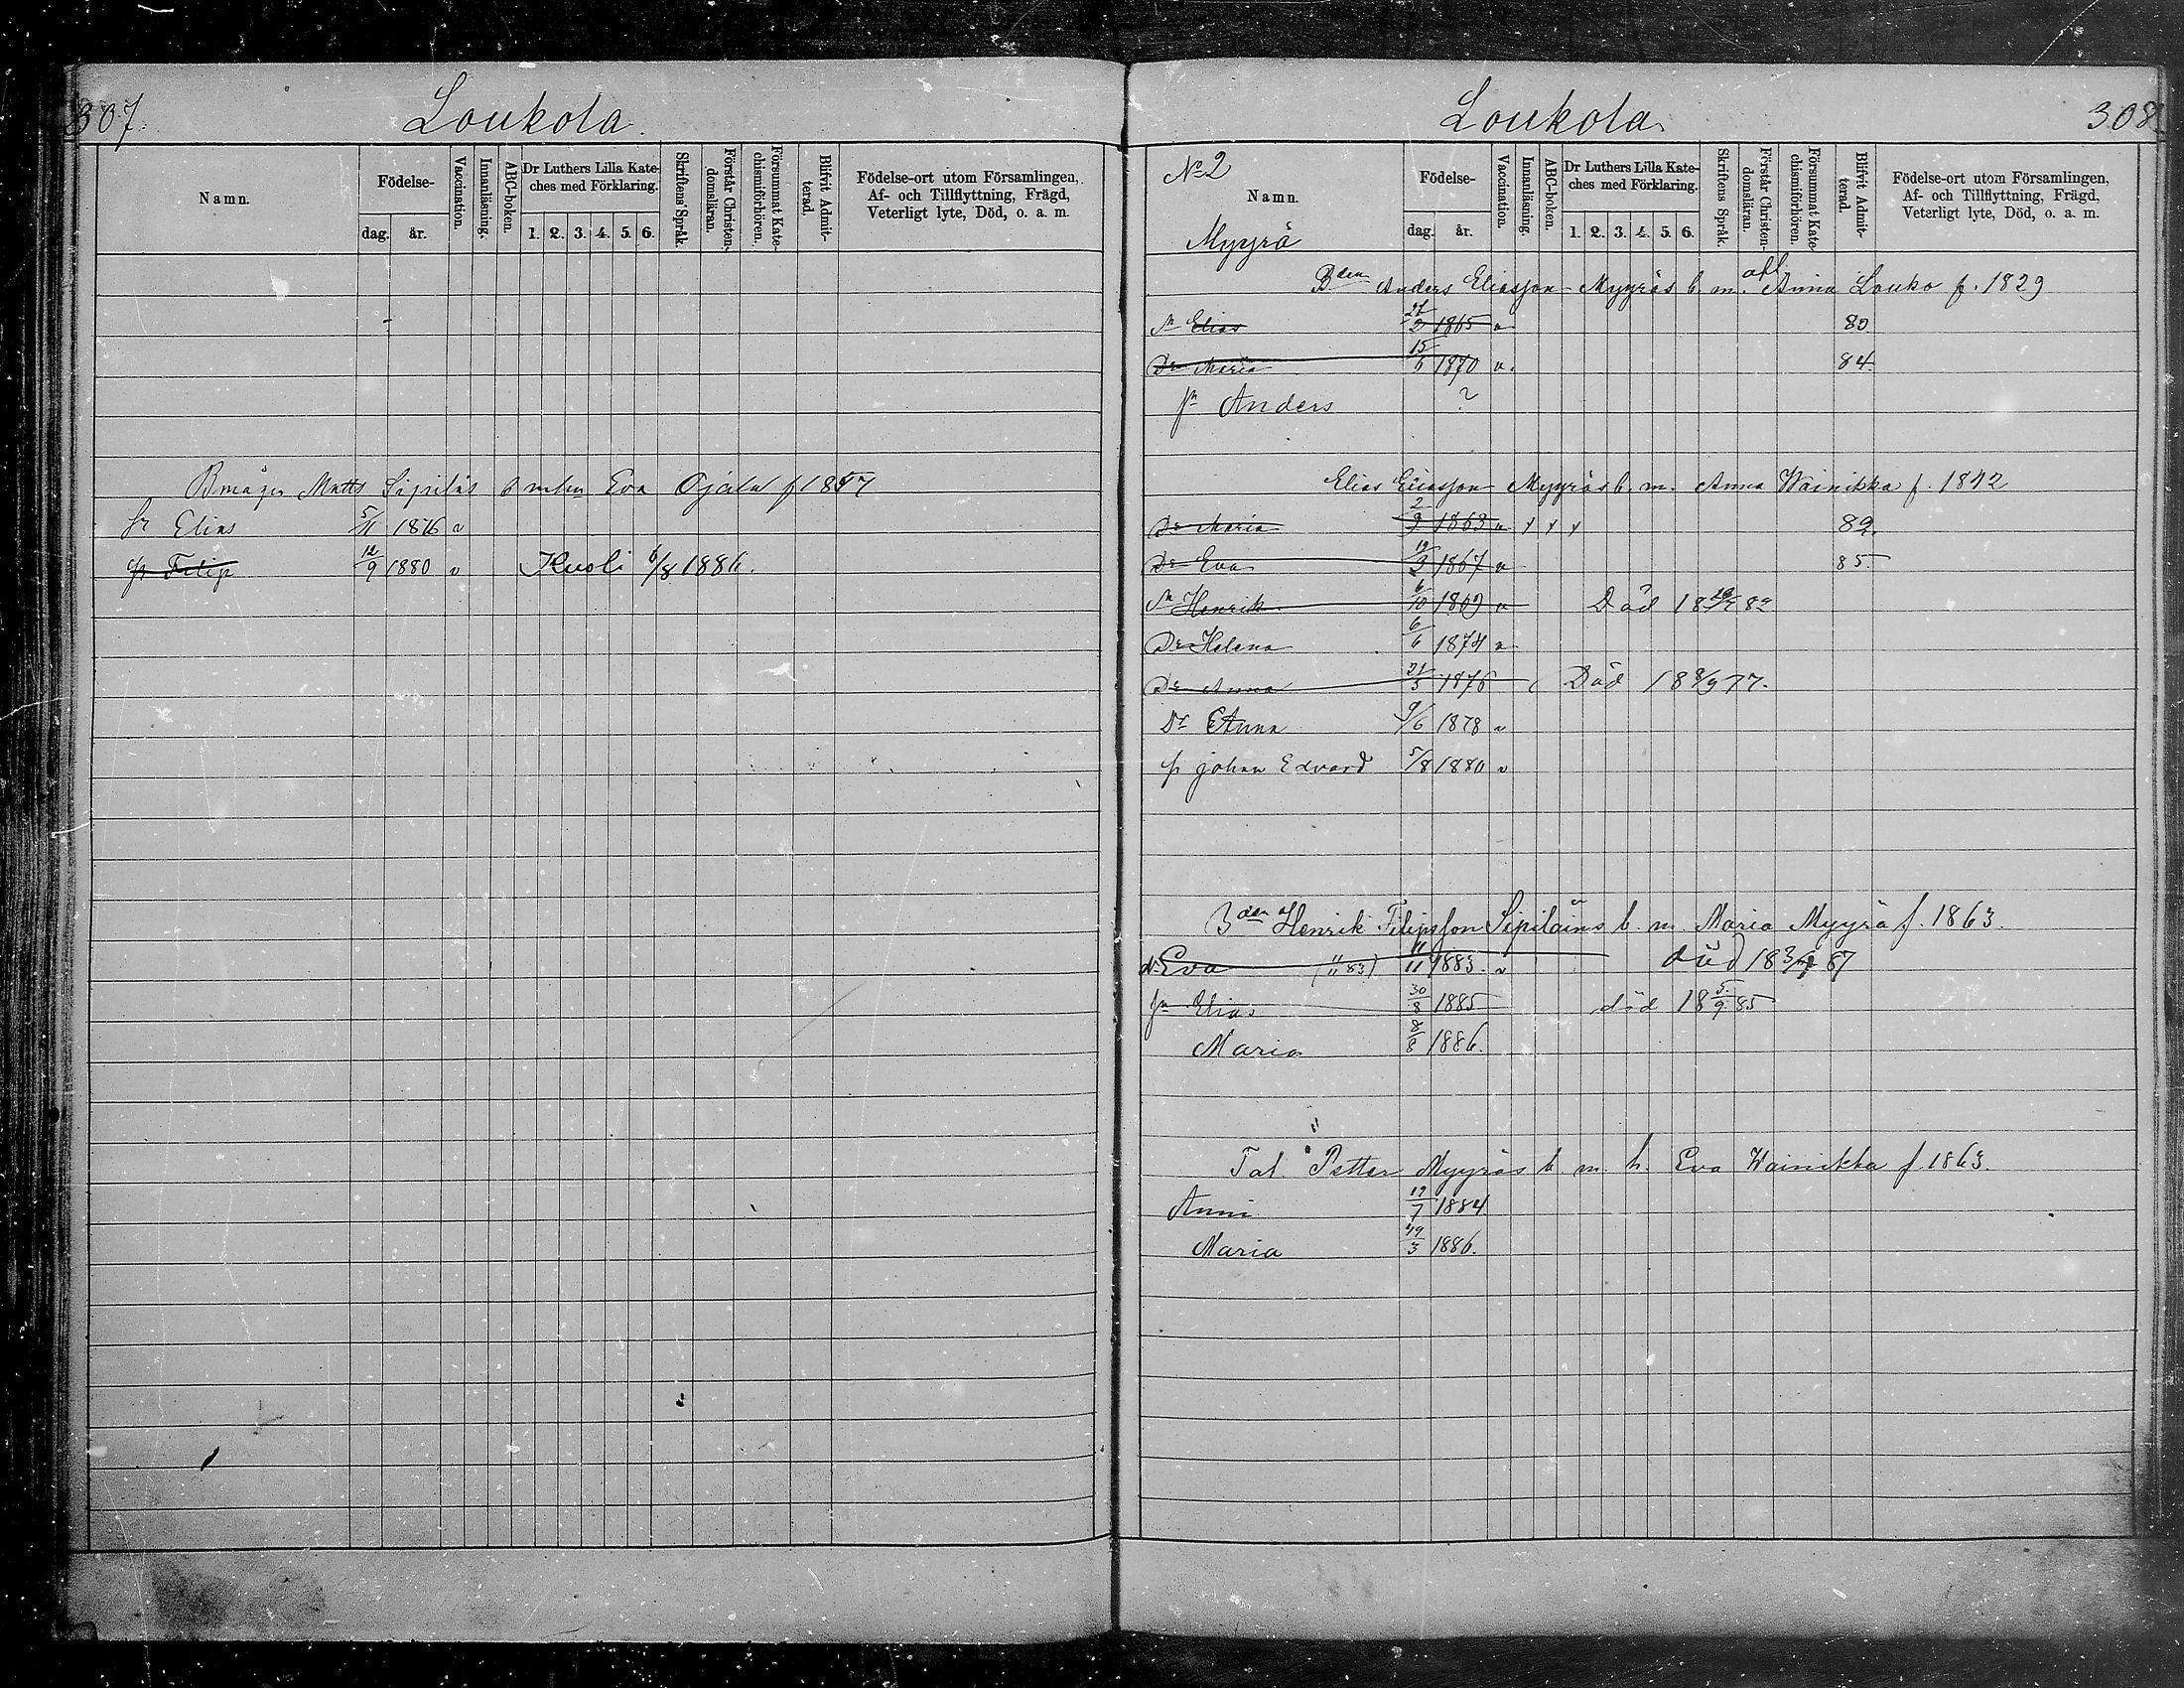 307.
Loukola.
Namn.
Födelse-
dag. år.
Vaccination.
Innanläsning.
ABC-boken.
Dr Luthers Lilla Kate-
ches med Förklaring.
1. 2. 3. 4. 5. 6.
Skriftens Språk.
Förstår Christen-
domsläran.
Försummat Kate-
chismiförhören.
Blifvit Admit-
terad.
Födelse-ort utom Församlingen,
Af- och Tillflyttning, Frägd,
Veterligt lyte, Död, o. a. m.
Matts Sipiläs Eva Ojala f 1847
Sr Elias 5/11 1876 v
Sr Filip 12/9 1880 v Kuoli 6/8 1886.
Loukola.
308
No 2
Namn.
Myyrä
Födelse-
dag. år.
Vaccination.
Innanläsning.
ABC-boken.
Dr Luthers Lilla Kate-
ches med Förklaring.
1. 2. 3. 4. 5. 6.
Skriftens Språk.
Förstår Christen-
domsläran.
Försummat Kate-
chismiförhören.
Blifvit Admit-
terad.
Födelse-ort utom Församlingen,
Af- och Tillflyttning, Frägd,
Veterligt lyte, Död, o. a. m.
Bden Anders Eliasson Myyräs b. m. afl Anna Louko f. 1829
Sn Elias 21/2 1865 v 80.
Dr Maria 15/6 1870 v. 84.
Sn Anders ?
Elias Eliasson Myyräs b. m. Anna Wainikka f. 1842
Dr Maria 1863 v y y y 82.
Dr Eva 19/3 1867 v 85.
Sn Henrik 6/10 1869 v Död
Dr Helena 6/6 1874 v
Dr Anna 21/5 1876 Död 18 8/9 77.
Dr Anna 9/6 1878 v
Sr Johan Edvard 5/8 1880 v
Bden Henrik Filipsson Sipiläins b. m. Maria Myyrä f. 1863.
dr Eva 11/11 1883. v död
Sn Elias 30/8 1885 död 18 5/9 85
Maria 8/8 1886.
Tal. Petter Myyräs b. m. h. Eva Wainikka f. 1863.
Anni 19/7 1884
Maria 19/3 1886.